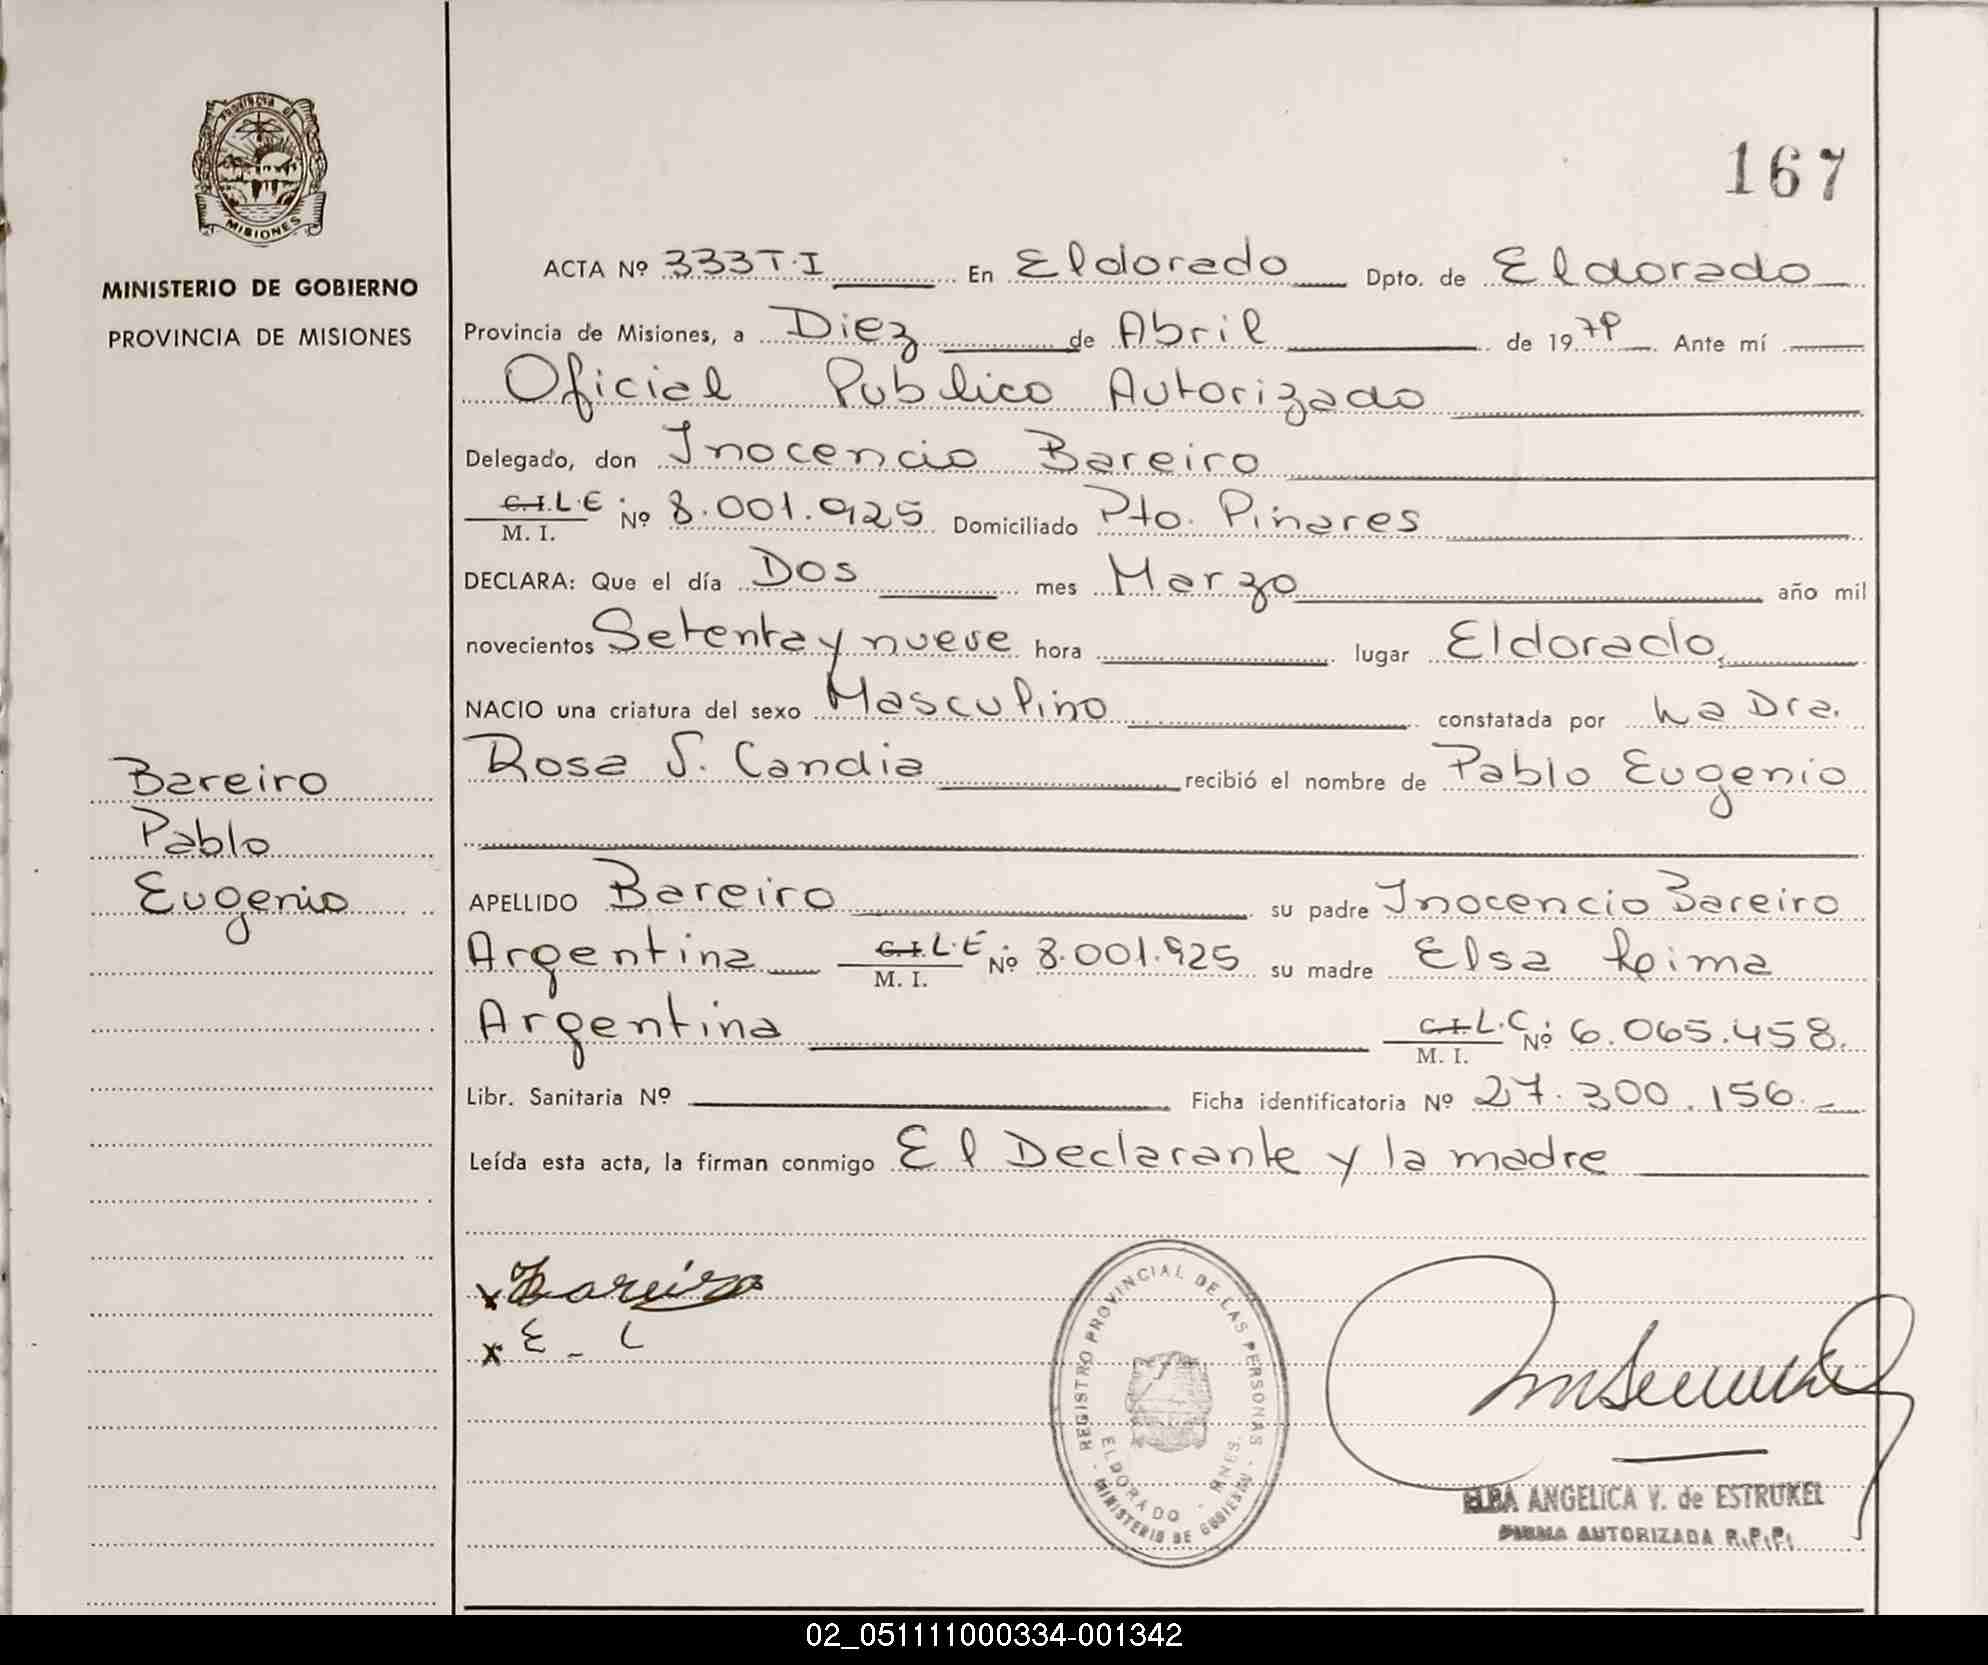 PROVINCIA DE
MISIONES
MINISTERIO DE GOBIERNO
PROVINCIA DE MISIONES
Bareiro
Pablo
Eugenio
167
ACTA Nº 333 T.I En Eldorado Dpto. de Eldorado
Provincia de Misiones, a Diez de Abril de 1979. Ante mí
Oficial Publico Autorizado
Delegado, don Inocencio Bareiro
C.I. L.E Nº 8.001.925 Domiciliado Pto. Pinares
M. I.
DECLARA: Que el día Dos mes Marzo año mil
novecientos Setenta y nueve hora lugar Eldorado,
NACIO una criatura del sexo Masculino constatada por La Dra.
Rosa S. Candia recibió el nombre de Pablo Eugenio
APELLIDO Bareiro su padre Inocencio Bareiro
Argentina C.I. L.E Nº 8.001.925 su madre Elsa Leima
M. I.
Argentina C.I. L.C Nº 6.065.458.
M. I.
Libr. Sanitaria Nº Ficha identificatoria Nº 27.300.156.-
Leída esta acta, la firman conmigo El Declarante y la madre
x Bareiro
x E - L
REGISTRO PROVINCIAL DE LAS PERSONAS
ELDORADO - MNES.
- MINISTERIO DE GOBIERNO -
ELBA ANGELICA V. de ESTRUKEL
FIRMA AUTORIZADA R.P.P.
02_051111000334-001342